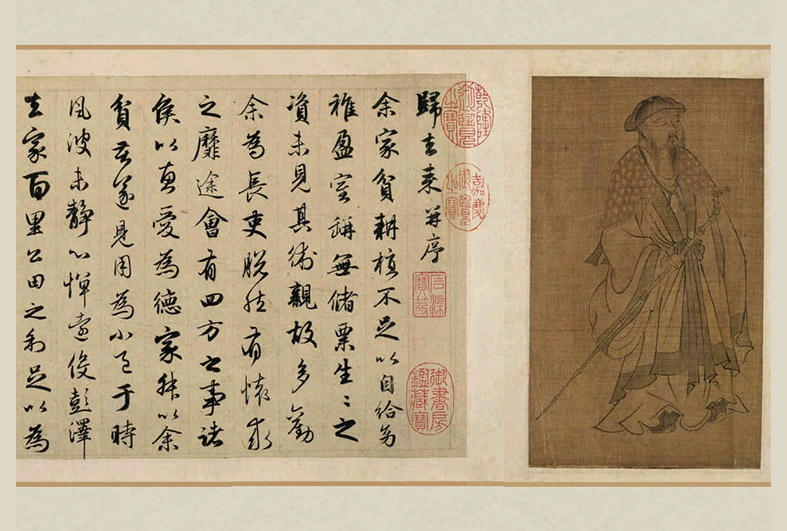 歸去来并序
余家貧耕植不足以自給幼
稚盈室缾無儲粟生〻之
資未見其術親故多勸
余為長吏脱然有懷求
之靡途會有四方之事諸
侯以惠愛為德家叔以余
貧苦遂見用為小邑于時
風波未靜心憚遠役彭澤
去家百里公田之利足以為
乾隆御覽之寶
嘉慶御覽之寶
石渠寶笈
御書房鑑藏寶